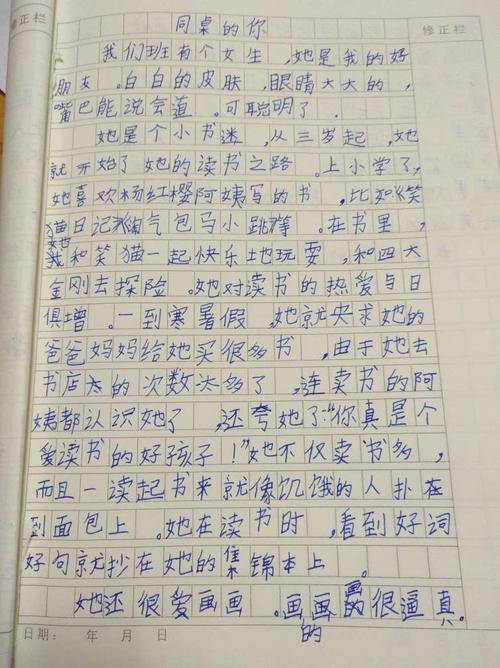 同桌的你
修正栏
修正栏
我们班有个女生，她是我的好
朋友。白白的皮肤，眼睛大大的，
嘴巴能说会道。可聪明了。
她是个小书迷，从三岁起，她
就开始了她的读书之路。上小学了，
她喜欢杨红樱阿姨写的书，比如《笑
猫日记》《淘气包马小跳》等。在书里，
她和笑猫一起快乐地玩耍，和四大
金刚去探险。她对读书的热爱与日
俱增。一到寒暑假，她就央求她的
爸爸妈妈给她买很多书，由于她去
书店的次数太多了，连卖书的阿
姨都认识她了，还夸她了："你真是个
爱读书的好孩子！"她不仅卖书多，
而且一读起书来就像饥饿的人扑在
到面包上。她在读书时，看到好词
好句就抄在她的集锦本上。
她还很爱画画。画画的很逼真。
的
日期： 年 月 日